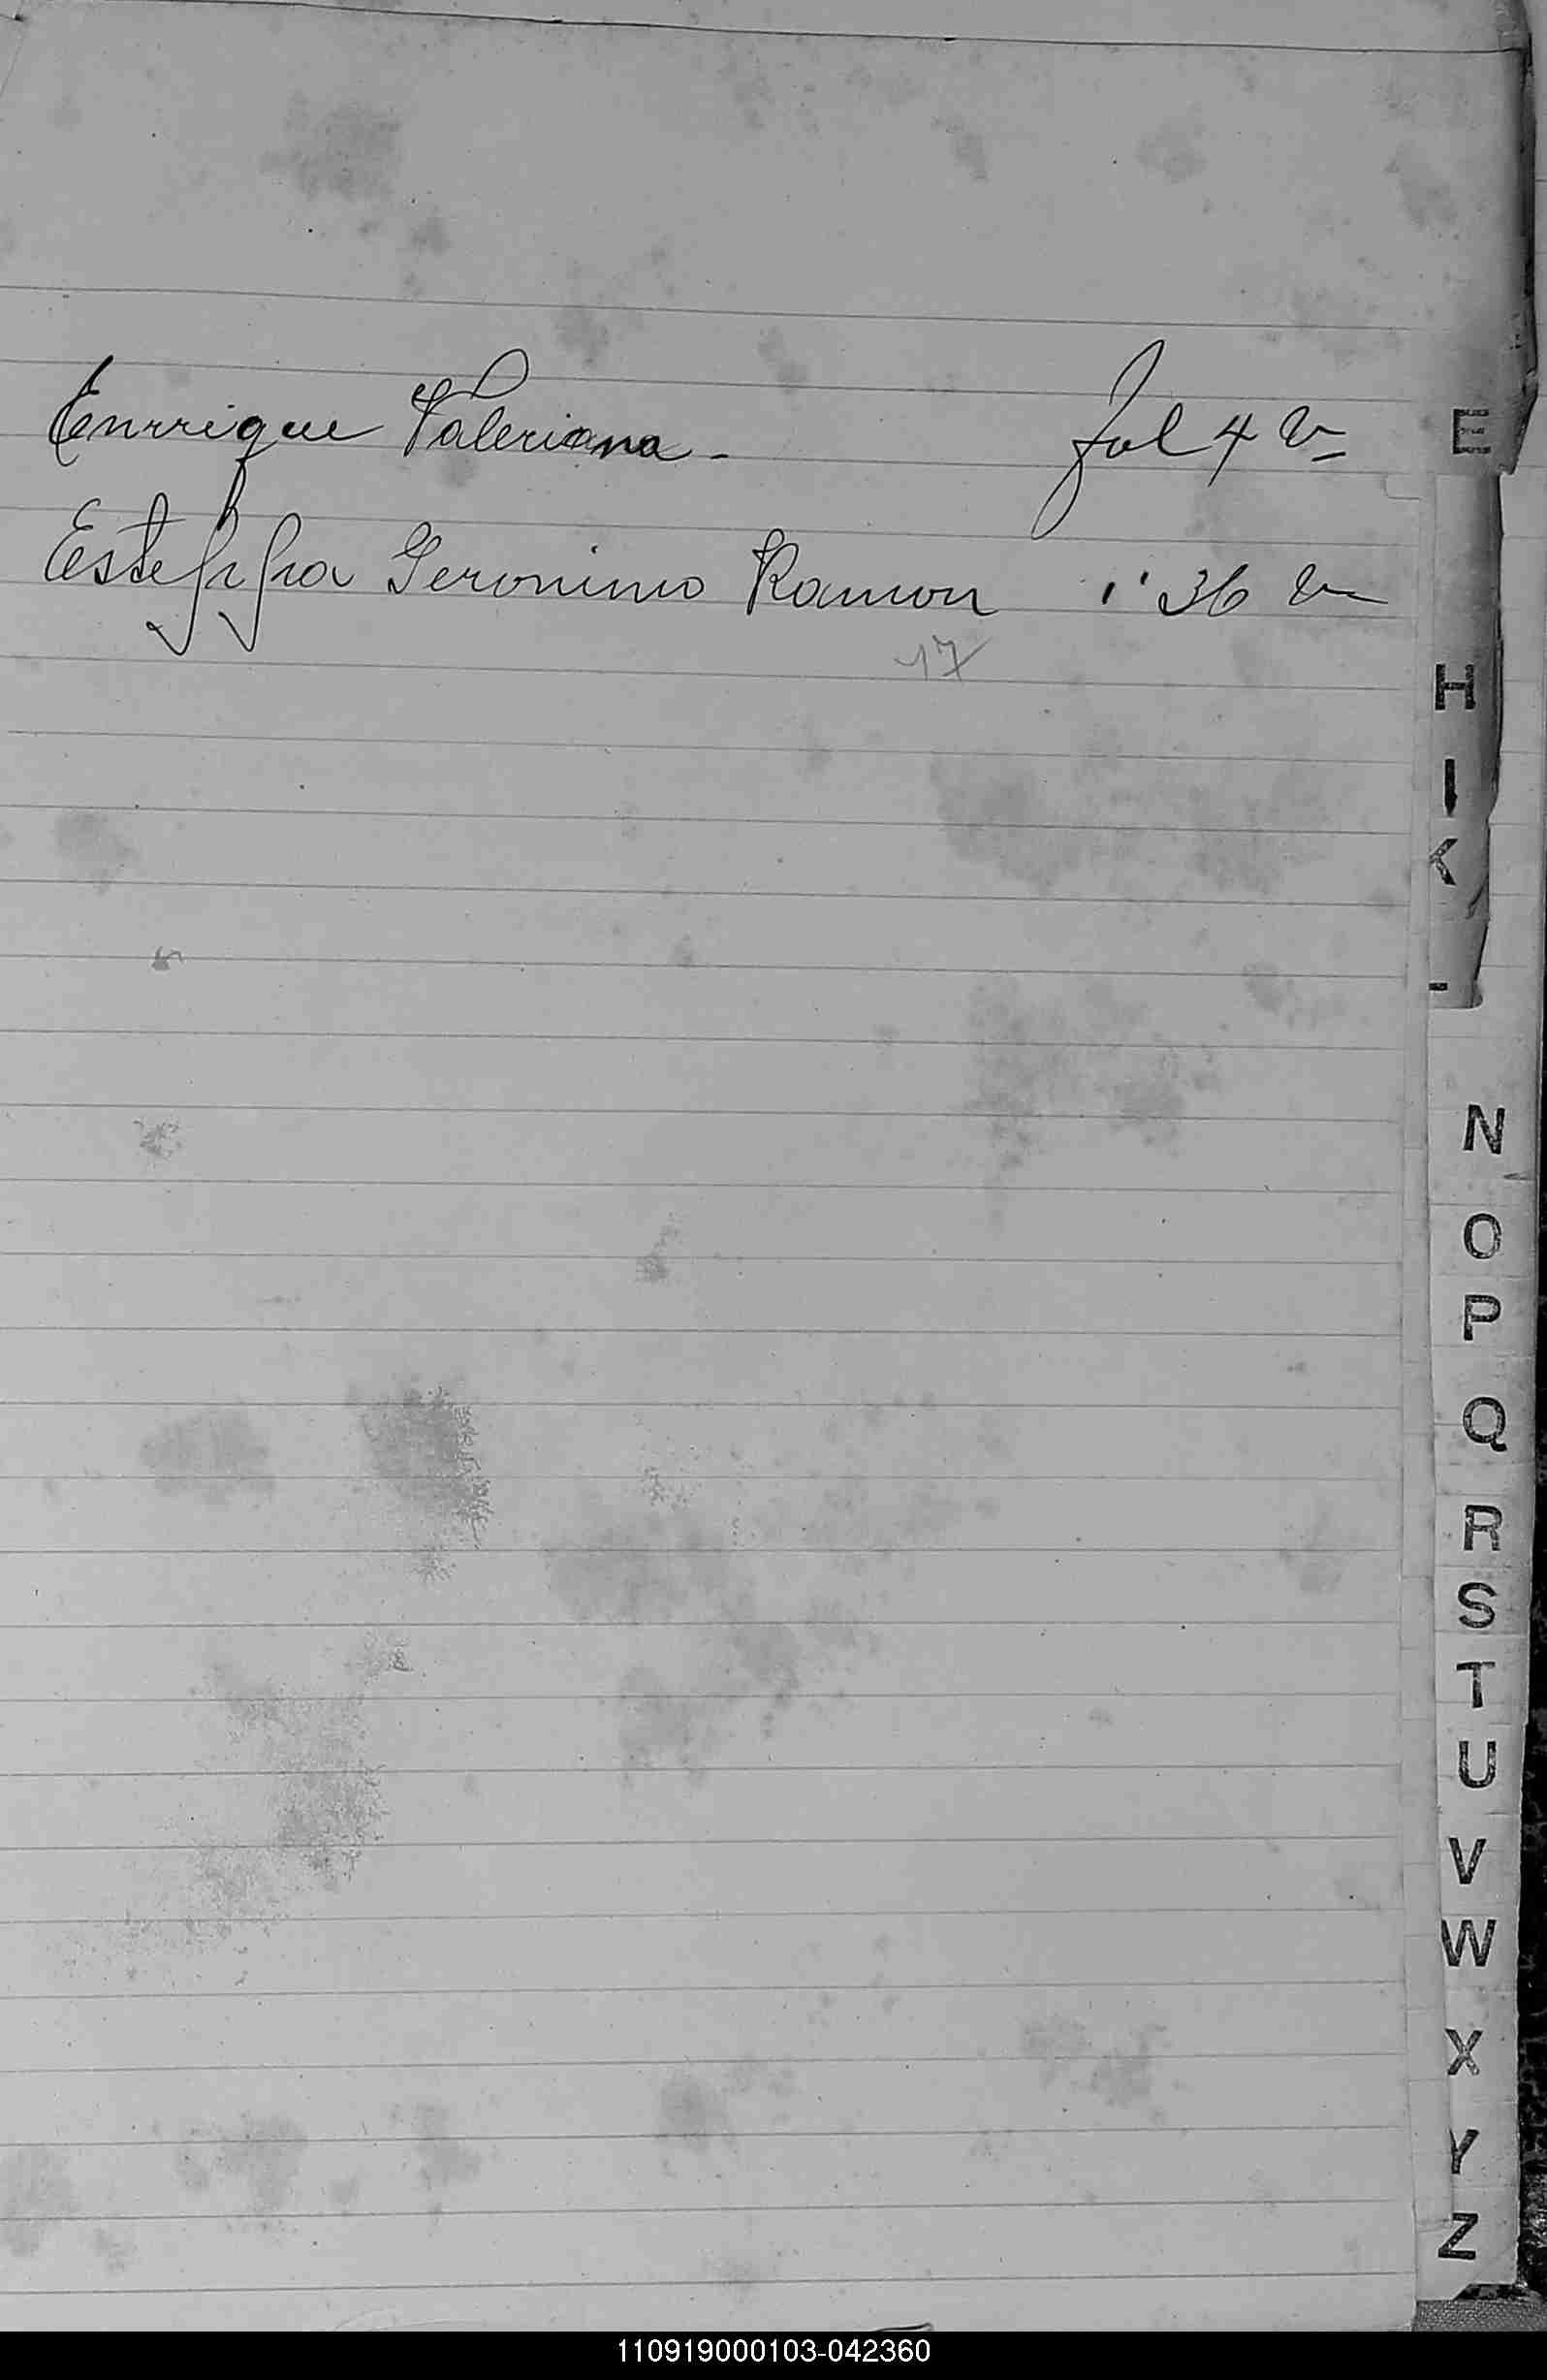 Enrrique Valeriana - fol 4 v
E
Esteffa Geronimo Ramon " 36 v
17
H
I
K
N
O
P
Q
R
S
T
U
V
W
X
Y
Z
110919000103-042360